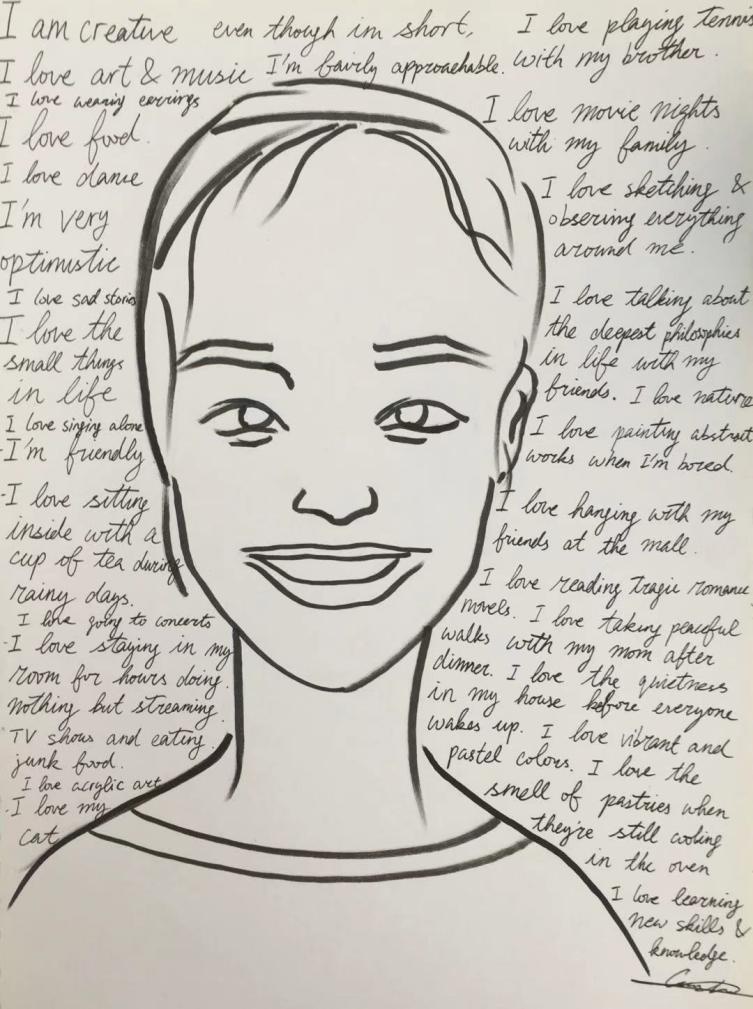 I am creative
I love art & music
I love wearing earrings
I love food.
I love dance
I'm very
optimistic
I love sad stories
I love the
small things
in life
I love singing alone
-I'm friendly
-I love sitting
inside with a
cup of tea during
rainy days.
I love going to concerts
-I love staying in my
room for hours doing
nothing but streaming
TV shows and eating
junk food.
I love acrylic art
-I love my
cat
even though im short,
I'm fairly approachable.
I love playing tennis
with my brother.
I love movie nights
with my family.
I love sketching &
observing everything
around me.
I love talking about
the deepest philosophies
in life with my
friends. I love nature
I love painting abstract
works when I'm bored.
I love hanging with my
friends at the mall.
I love reading tragic romance
novels. I love taking peaceful
walks with my mom after
dinner. I love the quietness
in my house before everyone
wakes up. I love vibrant and
pastel colors. I love the
smell of pastries when
they're still cooling
in the oven
I love learning
new skills &
knowledge.